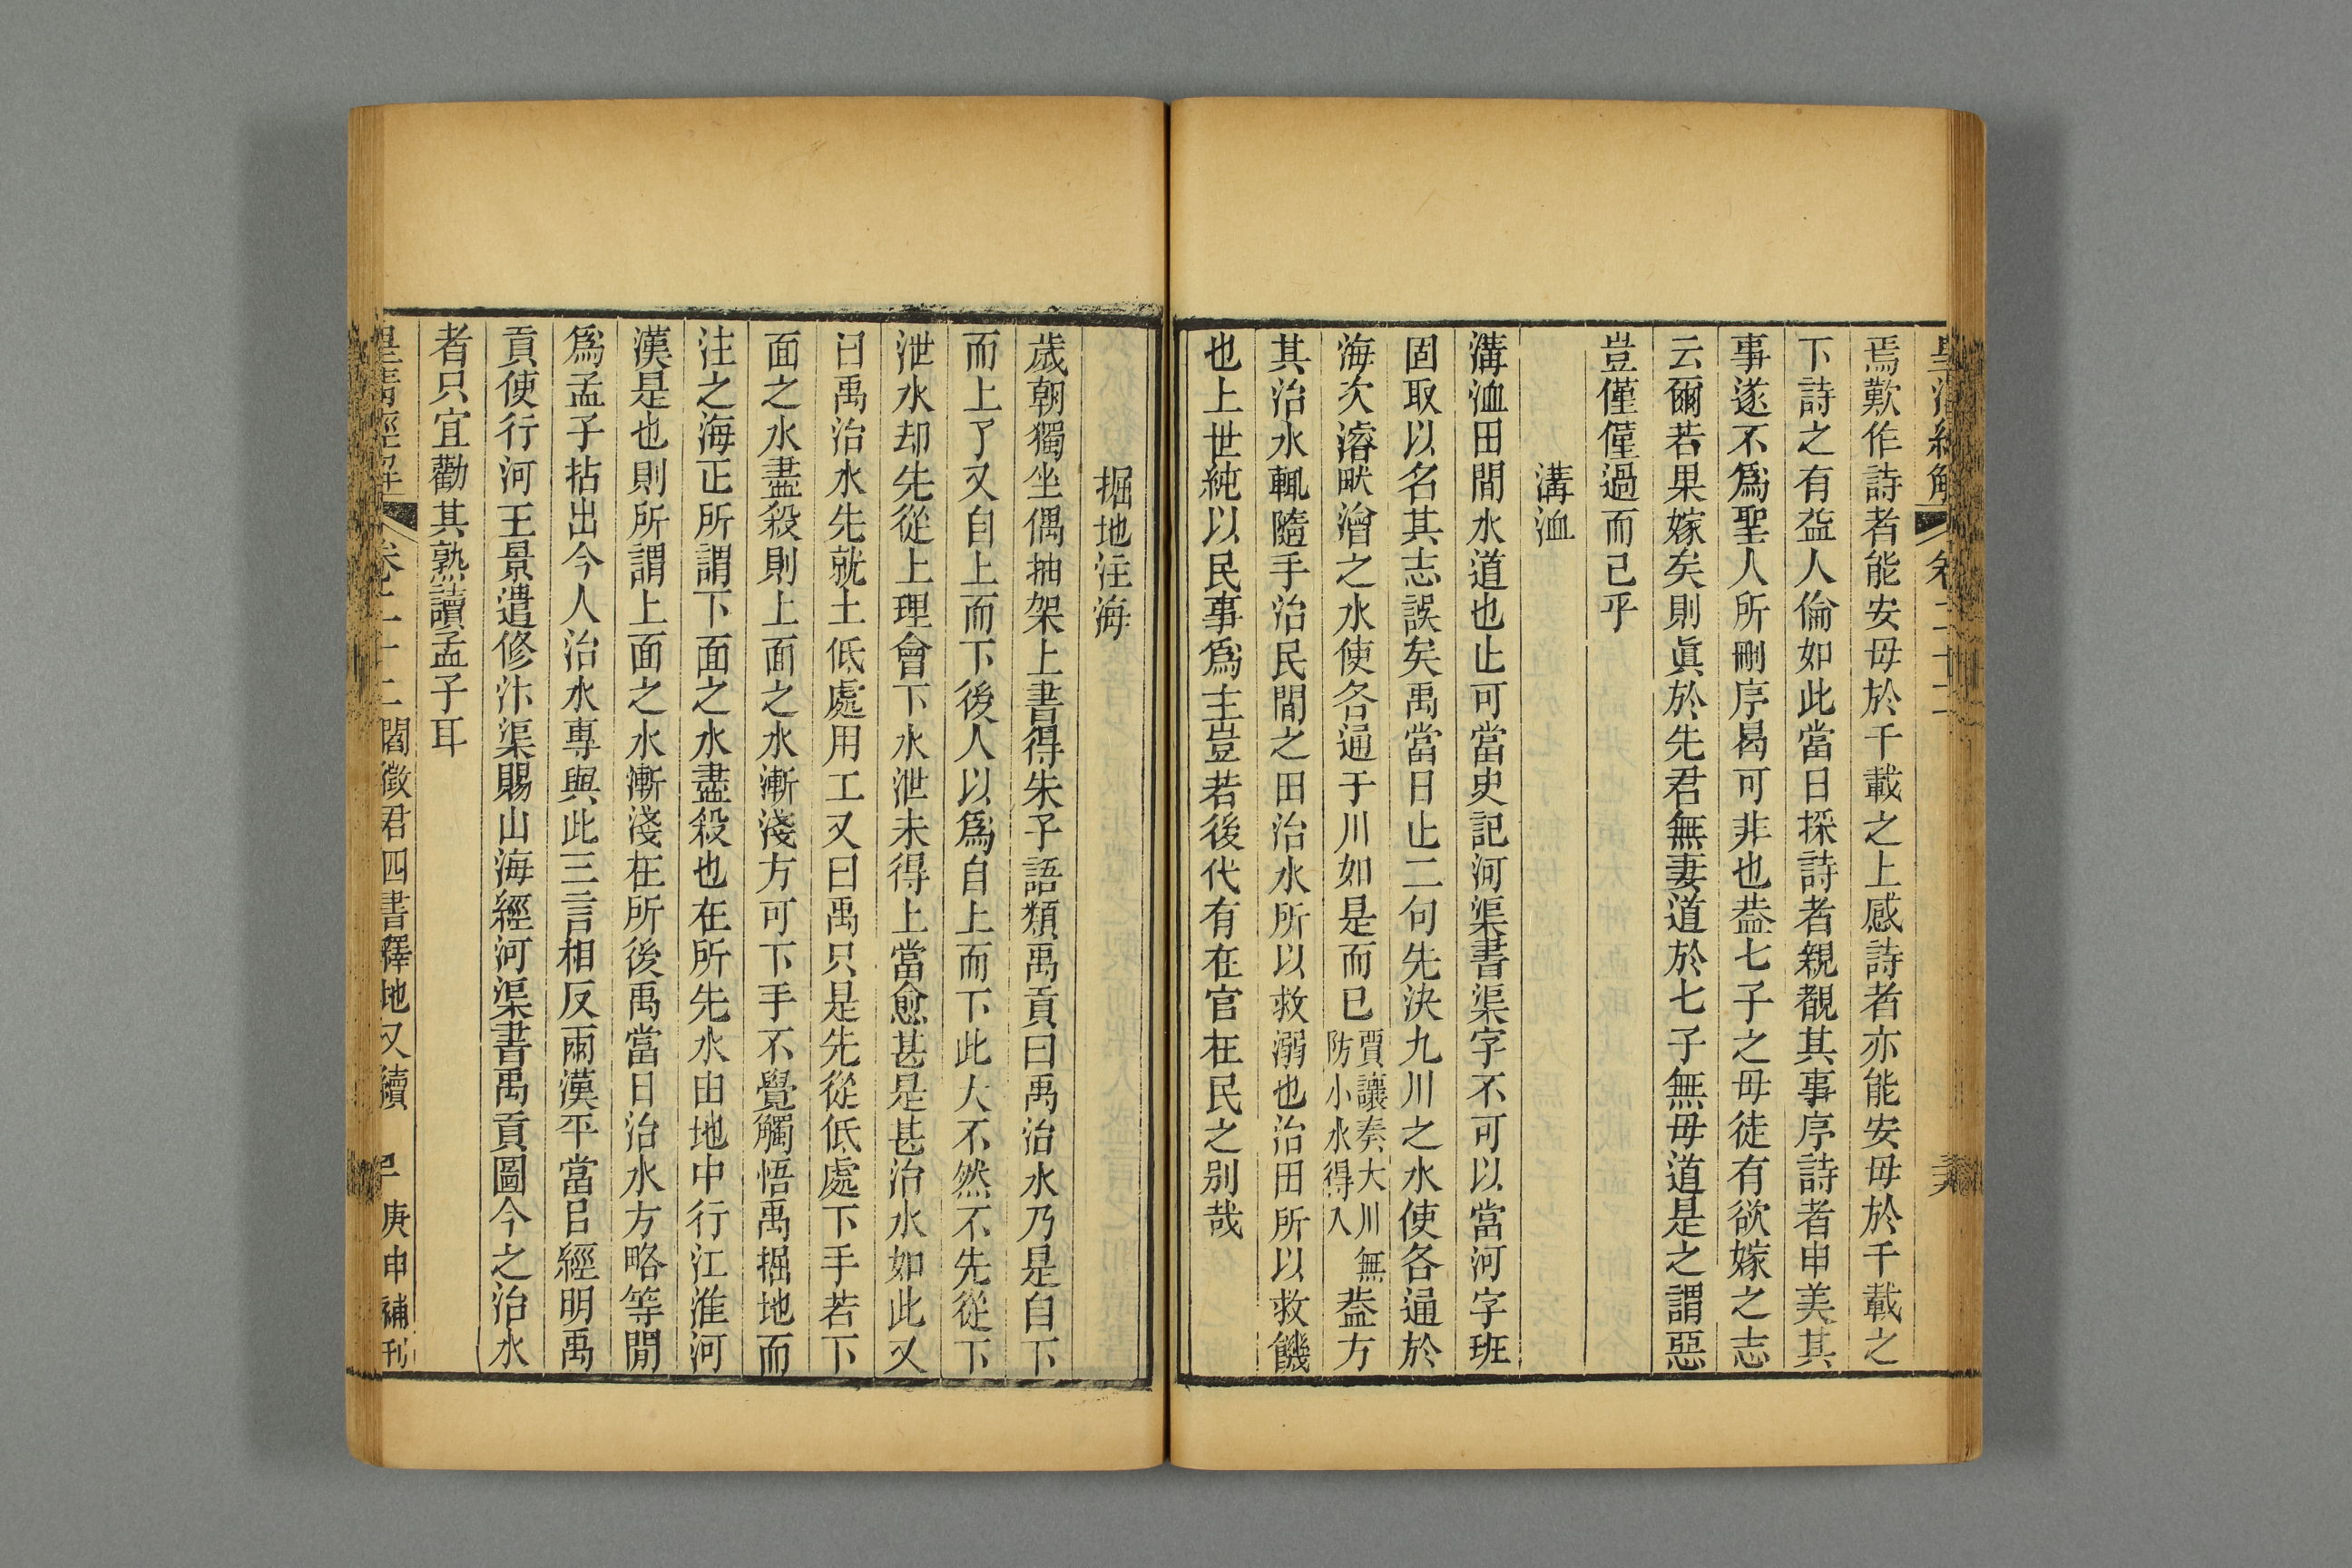 皇清經解 卷二十二
焉歎作詩者能安毋於千載之上感詩者亦能安毋於千載之
下詩之有益人倫如此當日採詩者親覩其事序詩者申美其
事遂不爲聖人所刪序曷可非也葢七子之毋徒有欲嫁之志
云爾若果嫁矣則眞於先君無妻道於七子無毋道是之謂惡
豈僅僅過而已乎
溝洫
溝洫田間水道也止可當史記河渠書渠字不可以當河字班
固取以名其志誤矣禹當日止二句先決九川之水使各通於
海次濬畎澮之水使各通于川如是而已賈讓奏大川無防小水得入葢方
其治水輒隨手治民間之田治水所以救溺也治田所以救饑
也上世純以民事爲主豈若後代有在官在民之别哉
掘地注海
歲朝獨坐偶抽架上書得朱子語類禹貢曰禹治水乃是自下
而上了又自上而下後人以爲自上而下此大不然不先從下
泄水却先從上理會下水泄未得上當愈甚是甚治水如此又
曰禹治水先就土低處用工又曰禹只是先從低處下手若下
面之水盡殺則上面之水漸淺方可下手不覺觸悟禹掘地而
注之海正所謂下面之水盡殺也在所先水由地中行江淮河
漢是也則所謂上面之水漸淺在所後禹當日治水方略等閒
爲孟子拈出今人治水專與此三言相反兩漢平當㠯經明禹
貢使行河王景遣修汴渠賜山海經河渠書禹貢圖今之治水
者只宜勸其熟讀孟子耳
皇清經解 卷二十二 閻徵君四書釋地又續 庚申補刊